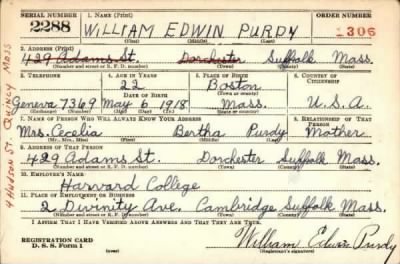 SERIAL NUMBER 1. NAME (Print) ORDER NUMBER
2288 WILLIAM EDWIN PURDY 1306
(First) (Middle) (Last)
2. ADDRESS (Print)
429 Adams St. Dorchester Suffolk Mass.
(Number and street or R. F. D. number) (Town) (County) (State)
3. TELEPHONE 4. AGE IN YEARS 5. PLACE OF BIRTH 6. COUNTRY OF CITIZENSHIP
22 Boston
DATE OF BIRTH (Town or county)
Geneva 7369 May 6 1918 Mass. U.S.A.
(Exchange) (Number) (Mo.) (Day) (Yr.) (State or country)
7. NAME OF PERSON WHO WILL ALWAYS KNOW YOUR ADDRESS 8. RELATIONSHIP OF THAT PERSON
Mrs. Cecelia Bertha Purdy Mother
(Mr., Mrs., Miss) (First) (Middle) (Last)
9. ADDRESS OF THAT PERSON
429 Adams St. Dorchester Suffolk Mass.
(Number and street or R. F. D. number) (Town) (County) (State)
10. EMPLOYER'S NAME
Harvard College
11. PLACE OF EMPLOYMENT OR BUSINESS
2 Divinity Ave. Cambridge Suffolk Mass.
(Number and street or R. F. D. number) (Town) (County) (State)
I AFFIRM THAT I HAVE VERIFIED ABOVE ANSWERS AND THAT THEY ARE TRUE.
REGISTRATION CARD
D. S. S. Form 1 (over)
William Edwin Purdy
(Registrant's signature)
4 Hudson St. Quincy Mass